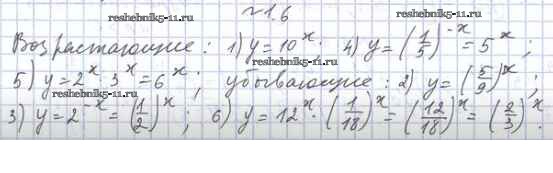 №1.6
reshebnik5-11.ru reshebnik5-11.ru
Возрастающие: 1) y=10^x; 4) y=(1/5)^-x=5^x;
5) y=2^x·3^x=6^x; убывающие: 2) y=(5/9)^x;
reshebnik5-11.ru
3) y=2^-x=(1/2)^x; 6) y=12^x·(1/18)^x=(12/18)^x=(2/3)^x.
reshebnik5-11.ru